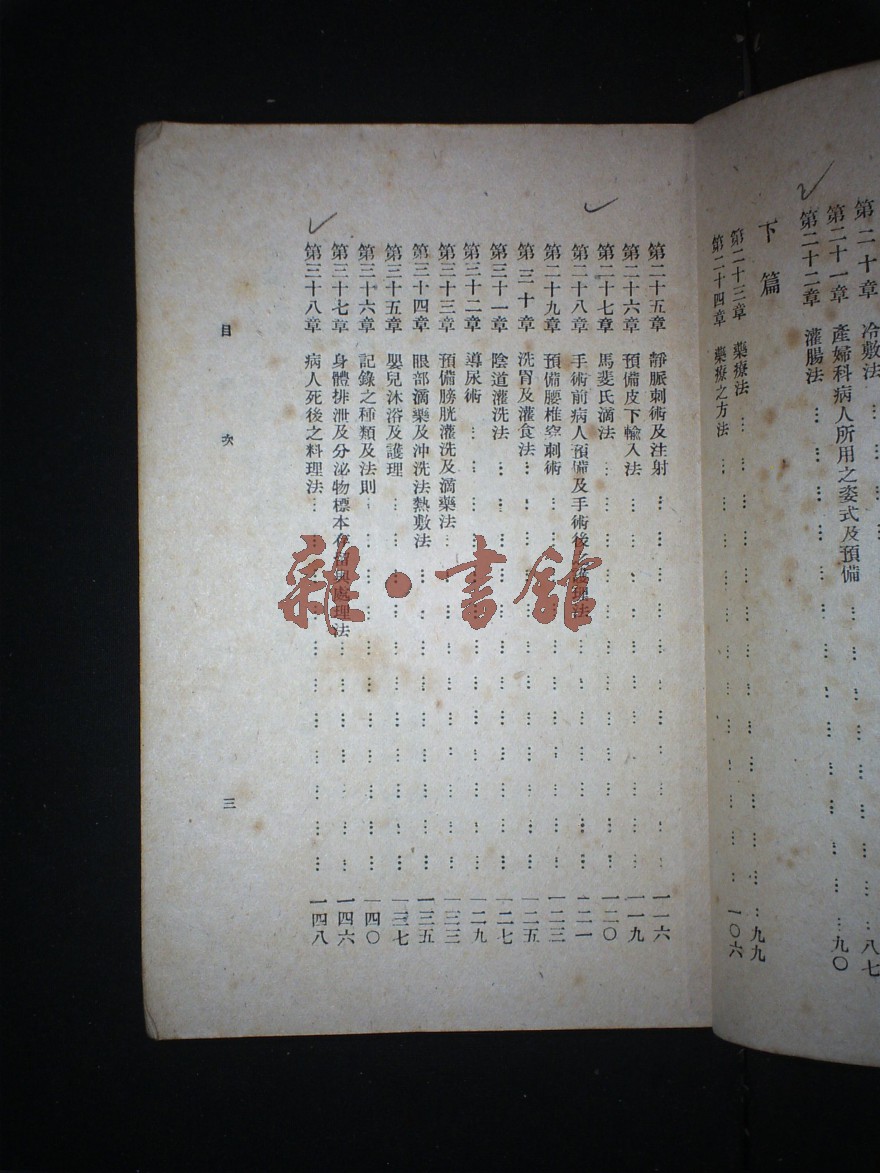 第二十章 冷敷法 … 八七
第二十一章 產婦科病人所用之姿式及預備 … 九〇
第二十二章 灌腸法 …
下篇
第二十三章 藥療法 … 九九
第二十四章 藥療之方法 … 一〇六
第二十五章 靜脈刺術及注射 … 一一六
第二十六章 預備皮下輸入法 … 一一九
第二十七章 馬斐氏滴法 … 一二〇
第二十八章 手術前病人預備及手術後之護理法 … 一二一
第二十九章 預備腰椎空刺術 … 一二三
第三十章 洗胃及灌食法 … 一二五
第三十一章 陰道灌洗法 … 一二七
第三十二章 導尿術 … 一二九
第三十三章 預備膀胱灌洗及滴藥法 … 一三三
第三十四章 眼部滴藥及沖洗法熱敷法 … 一三五
第三十五章 嬰兒沐浴及護理 … 一三七
第三十六章 記錄之種類及法則 … 一四〇
第三十七章 身體排泄及分泌物標本存留與處理法 … 一四六
第三十八章 病人死後之料理法 … 一四八
目次
三
雜·書館